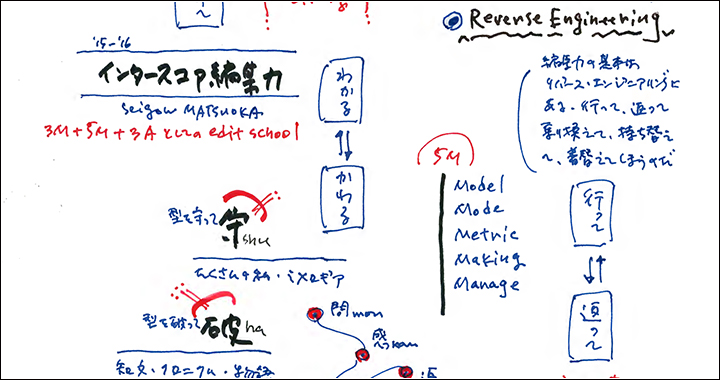 '15-'16
インタースコア編集力
Seigow MATSUOKA
3M+5M+3A という a edit school
わかる
かわる
型を守って 守 shu
たくさんの私・イメロギア
型を破って 破 ha
問 mon
感 kan
Reverse Engineering
編集力の基本は
リバース・エンジニアリングに
ある。行って、返って
乗り換えて、持ち替え
て、着替えてしまうのだ
5M
Model
Mode
Metric
Making
Manage
行って